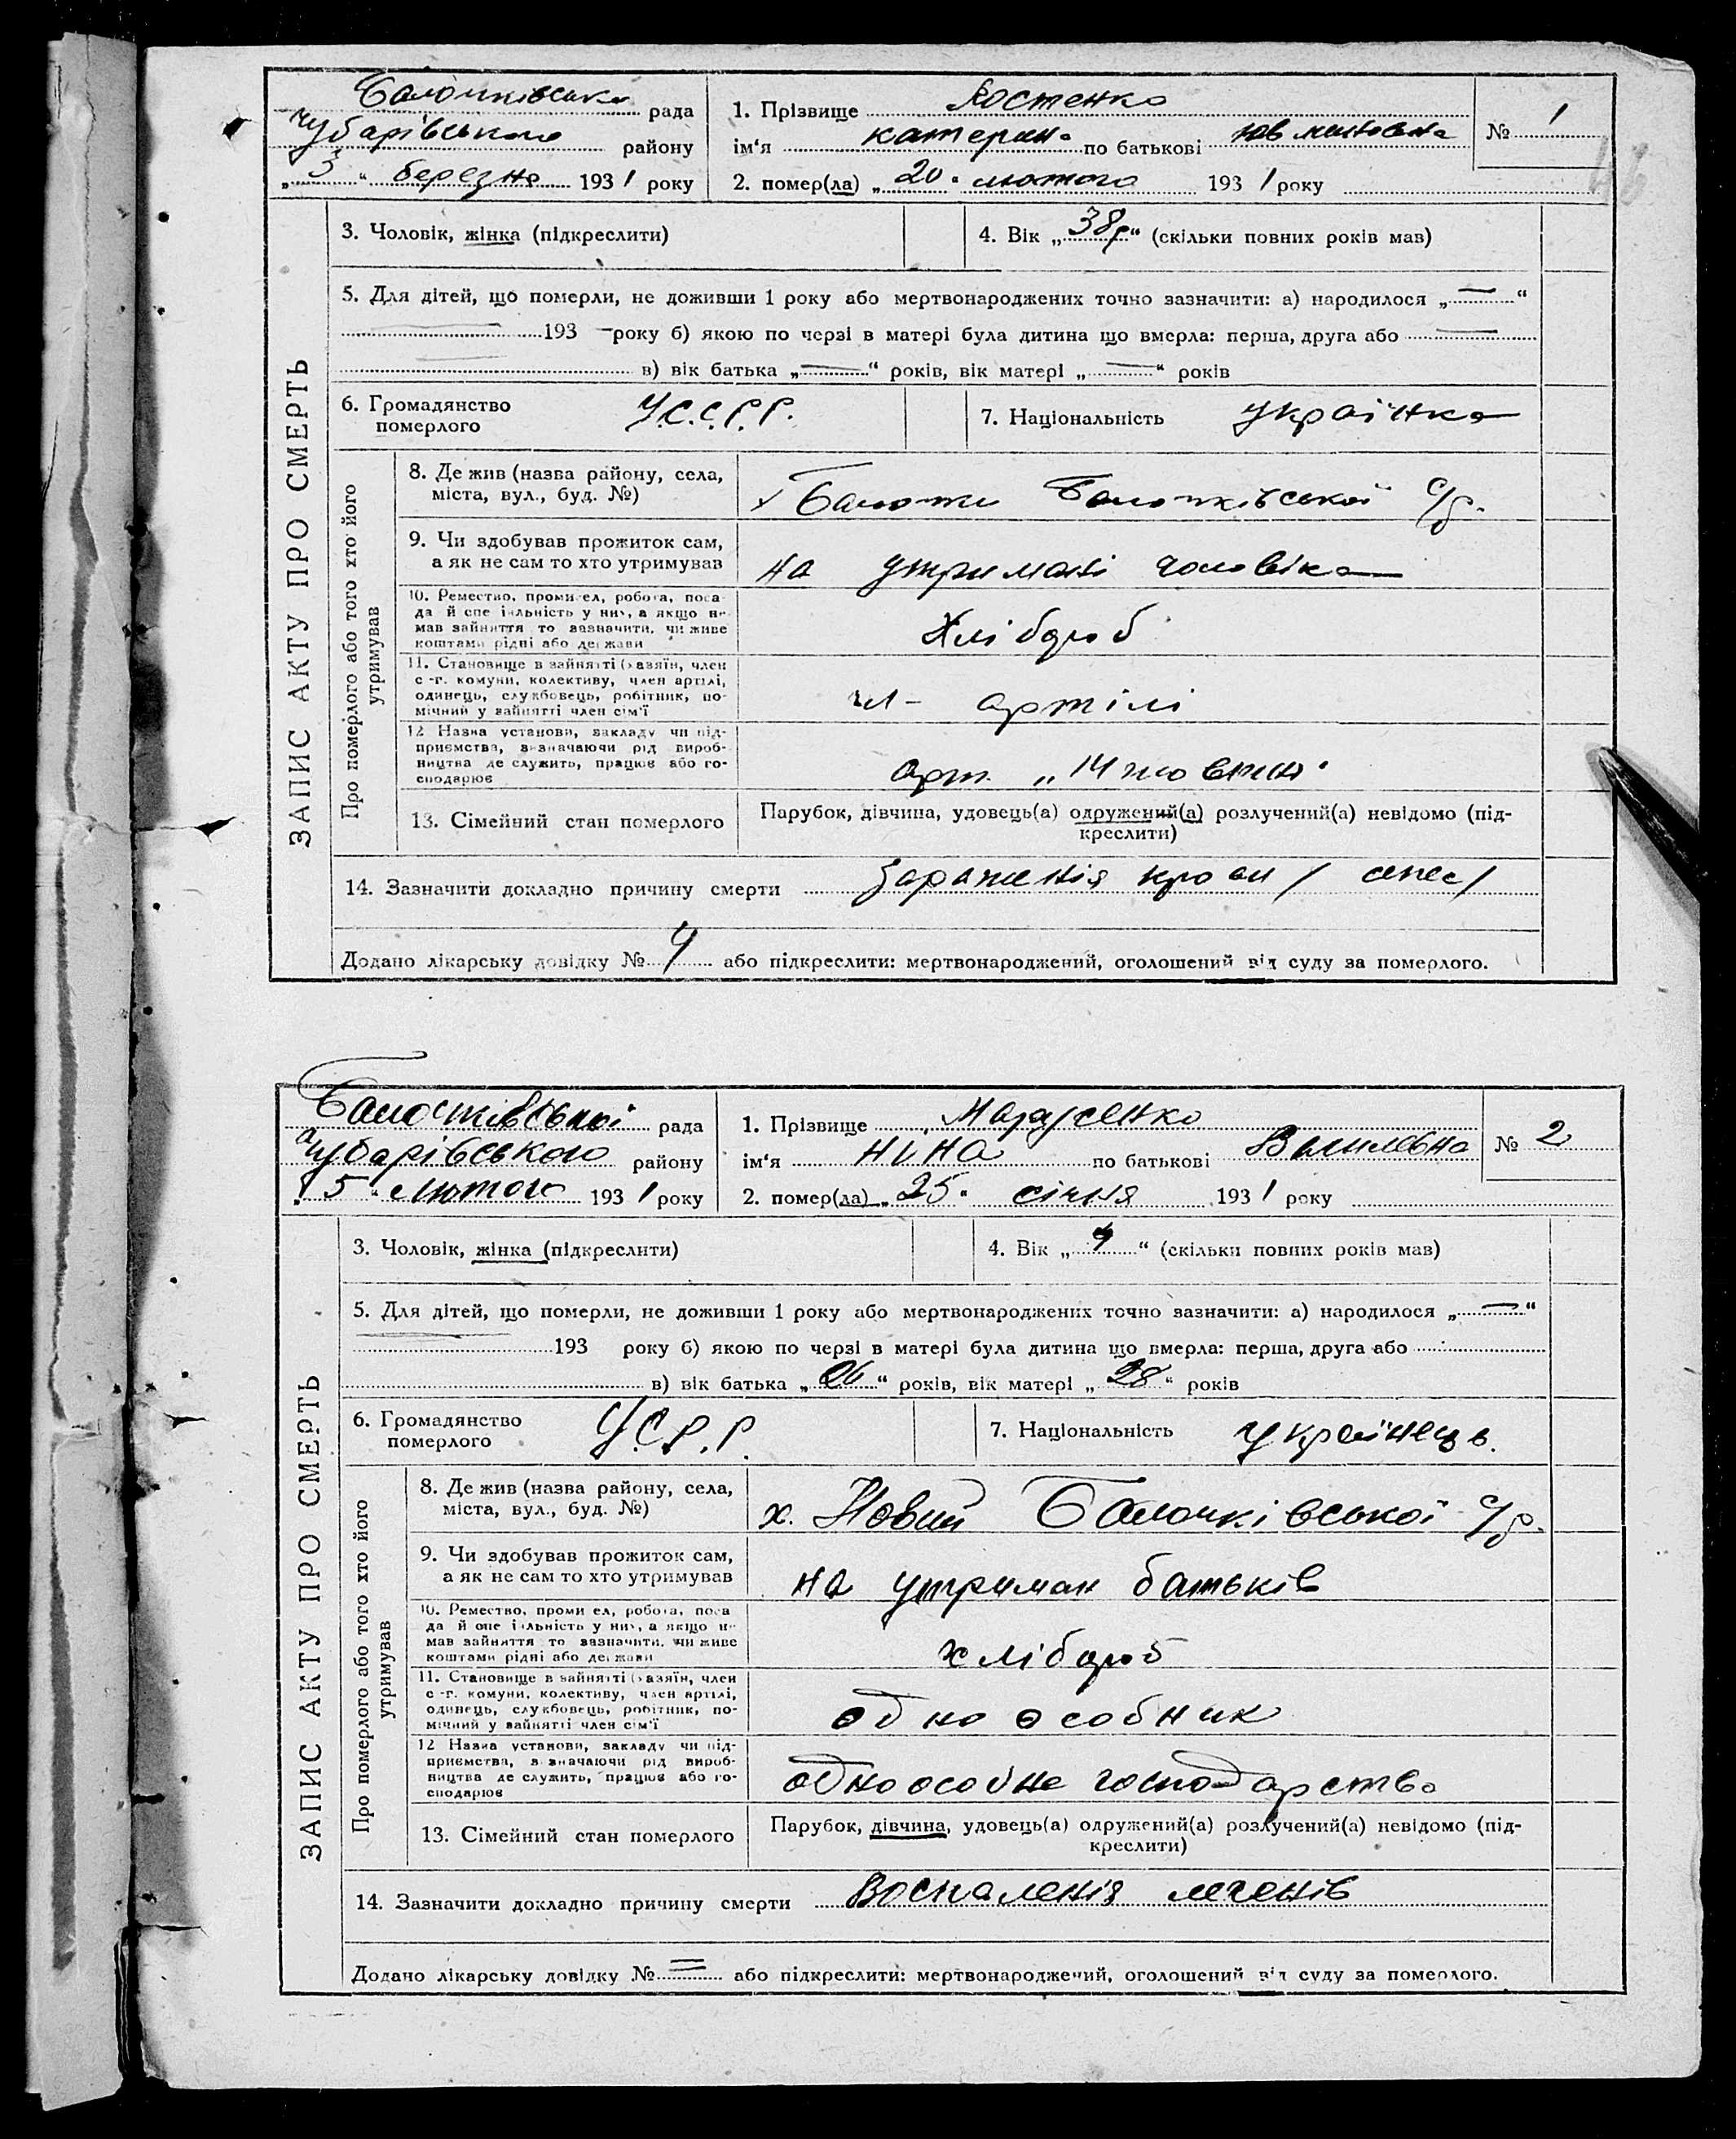 Балочківська рада
Чубарівського району
„3“ березня 1931 року
1. Прізвище Костенко
ім‘я Катерина по батькові
№ 1
2. помер(ла) „20“ лютого 1931 року
ЗАПИС АКТУ ПРО СМЕРТЬ
3. Чоловік, жінка (підкреслити)
4. Вік „38р“ (скільки повних років мав)
5. Для дітей, що померли, не доживши 1 року або мертвонароджених точно зазначити: а) народилося „—“
193 — року б) якою по черзі в матері була дитина що вмерла: перша, друга або —
в) вік батька „—“ років, вік матері „—“ років
6. Громадянство
померлого
У.С.С.Р.Р.
7. Національність українка
Про померлого або того хто його
утримував
8. Де жив (назва району, села,
міста, вул., буд. №)
Балочки Балочківської с/р.
9. Чи здобував прожиток сам,
а як не сам то хто утримував
на утримані чоловіка
10. Ремество, промисел, робота, поса-
да й спеціяльність у них, а якщо не
мав зайняття то зазначити, чи живе
коштами рідні або держави
Хлібороб
11. Становище в зайнятті (хазяїн, член
с.-г. комуни, колективу, член артілі,
одинець, службовець, робітник, по-
мічний у зайнятті член сім'ї
чл- артілі
12 Назва установи, закладу чи під-
приємства, зазначаючи рід вироб-
ництва де служить, працює або го-
сподарює
арт. „14 жовтня“
13. Сімейний стан померлого
Парубок, дівчина, удовець(а) одружений(а) розлучений(а) невідомо (під-
креслити)
14. Зазначити докладно причину смерти Зараженія крови
Додано лікарську довідку № 4 або підкреслити: мертвонароджений, оголошений від суду за померлого.
Балочківської рада
Чубарівського району
„5“ лютого 1931 року
1. Прізвище Марусенко
ім‘я Ніна по батькові
№ 2
2. помер(ла) „25“ січня 1931 року
ЗАПИС АКТУ ПРО СМЕРТЬ
3. Чоловік, жінка (підкреслити)
4. Вік „4“ (скільки повних років мав)
5. Для дітей, що померли, не доживши 1 року або мертвонароджених точно зазначити: а) народилося „—“
193 року б) якою по черзі в матері була дитина що вмерла: перша, друга або
в) вік батька „26“ років, вік матері „28“ років
6. Громадянство
померлого
У.С.Р.Р.
7. Національність українець.
Про померлого або того хто його
утримував
8. Де жив (назва району, села,
міста, вул., буд. №)
х. Новий Балочківської с/р.
9. Чи здобував прожиток сам,
а як не сам то хто утримував
на утриман батьків
10. Ремество, промисел, робота, поса-
да й спеціяльність у них, а якщо не
мав зайняття то зазначити, чи живе
коштами рідні або держави
хлібороб
11. Становище в зайнятті (хазяїн, член
с.-г. комуни, колективу, член артілі,
одинець, службовець, робітник, по-
мічний у зайнятті член сім'ї
одноособник
12 Назва установи, закладу чи під-
приємства, зазначаючи рід вироб-
ництва де служить, працює або го-
сподарює
одноособне господарство
13. Сімейний стан померлого
Парубок, дівчина, удовець(а) одружений(а) розлучений(а) невідомо (під-
креслити)
14. Зазначити докладно причину смерти Воспаленія легенів
Додано лікарську довідку № = або підкреслити: мертвонароджений, оголошений від суду за померлого.